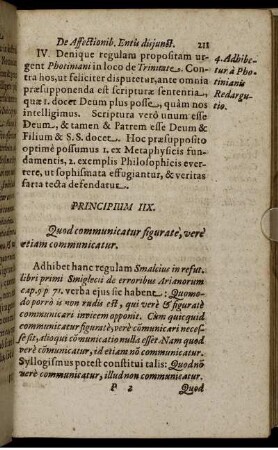 De Affectionib. Entis disjunct. 211
IV. Denique regulam propositam ur-
gent Photiniani in loco de Trinitate. Con-
tra hos, ut feliciter disputetur, ante omnia
præsupponenda est scripturæ sententia,
quæ 1. docet Deum plus posse, quàm nos
intelligimus. Scriptura verò unum esse
Deum, & tamen & Patrem esse Deum &
Filium & S.S. docet. Hoc præsupposito
optimè possumus 1. ex Metaphysicis fun-
damentis, 2. exemplis Philosophicis ever-
tere, ut sophismata effugiantur, & veritas
sarta tecta defendatur.
4. Adhibe-
tur à Pho-
tinianis
Redargu-
tio.
PRINCIPIUM IIX.
Quod communicatur figuratè, verè
etiam communicatur.
Adhibet hanc regulam Smalcius in refut.
libri primi Smiglecii de erroribus Arianorum
cap. 9 p. 71. verba ejus sic habent: Quomo-
do porrò is non rudis est, qui verè & figuratè
communicari invicem opponit. Cum quicquid
communicatur figuratè, verè cõmunicari neces-
se sit, alioqui cõmunicatio nulla esset. Nam quod
verè cõmunicatur, id etiam nõ communicatur.
Syllogismus potest constitui talis: Quod nõ
verè communicatur, illud non communicatur.
P 2 Quod